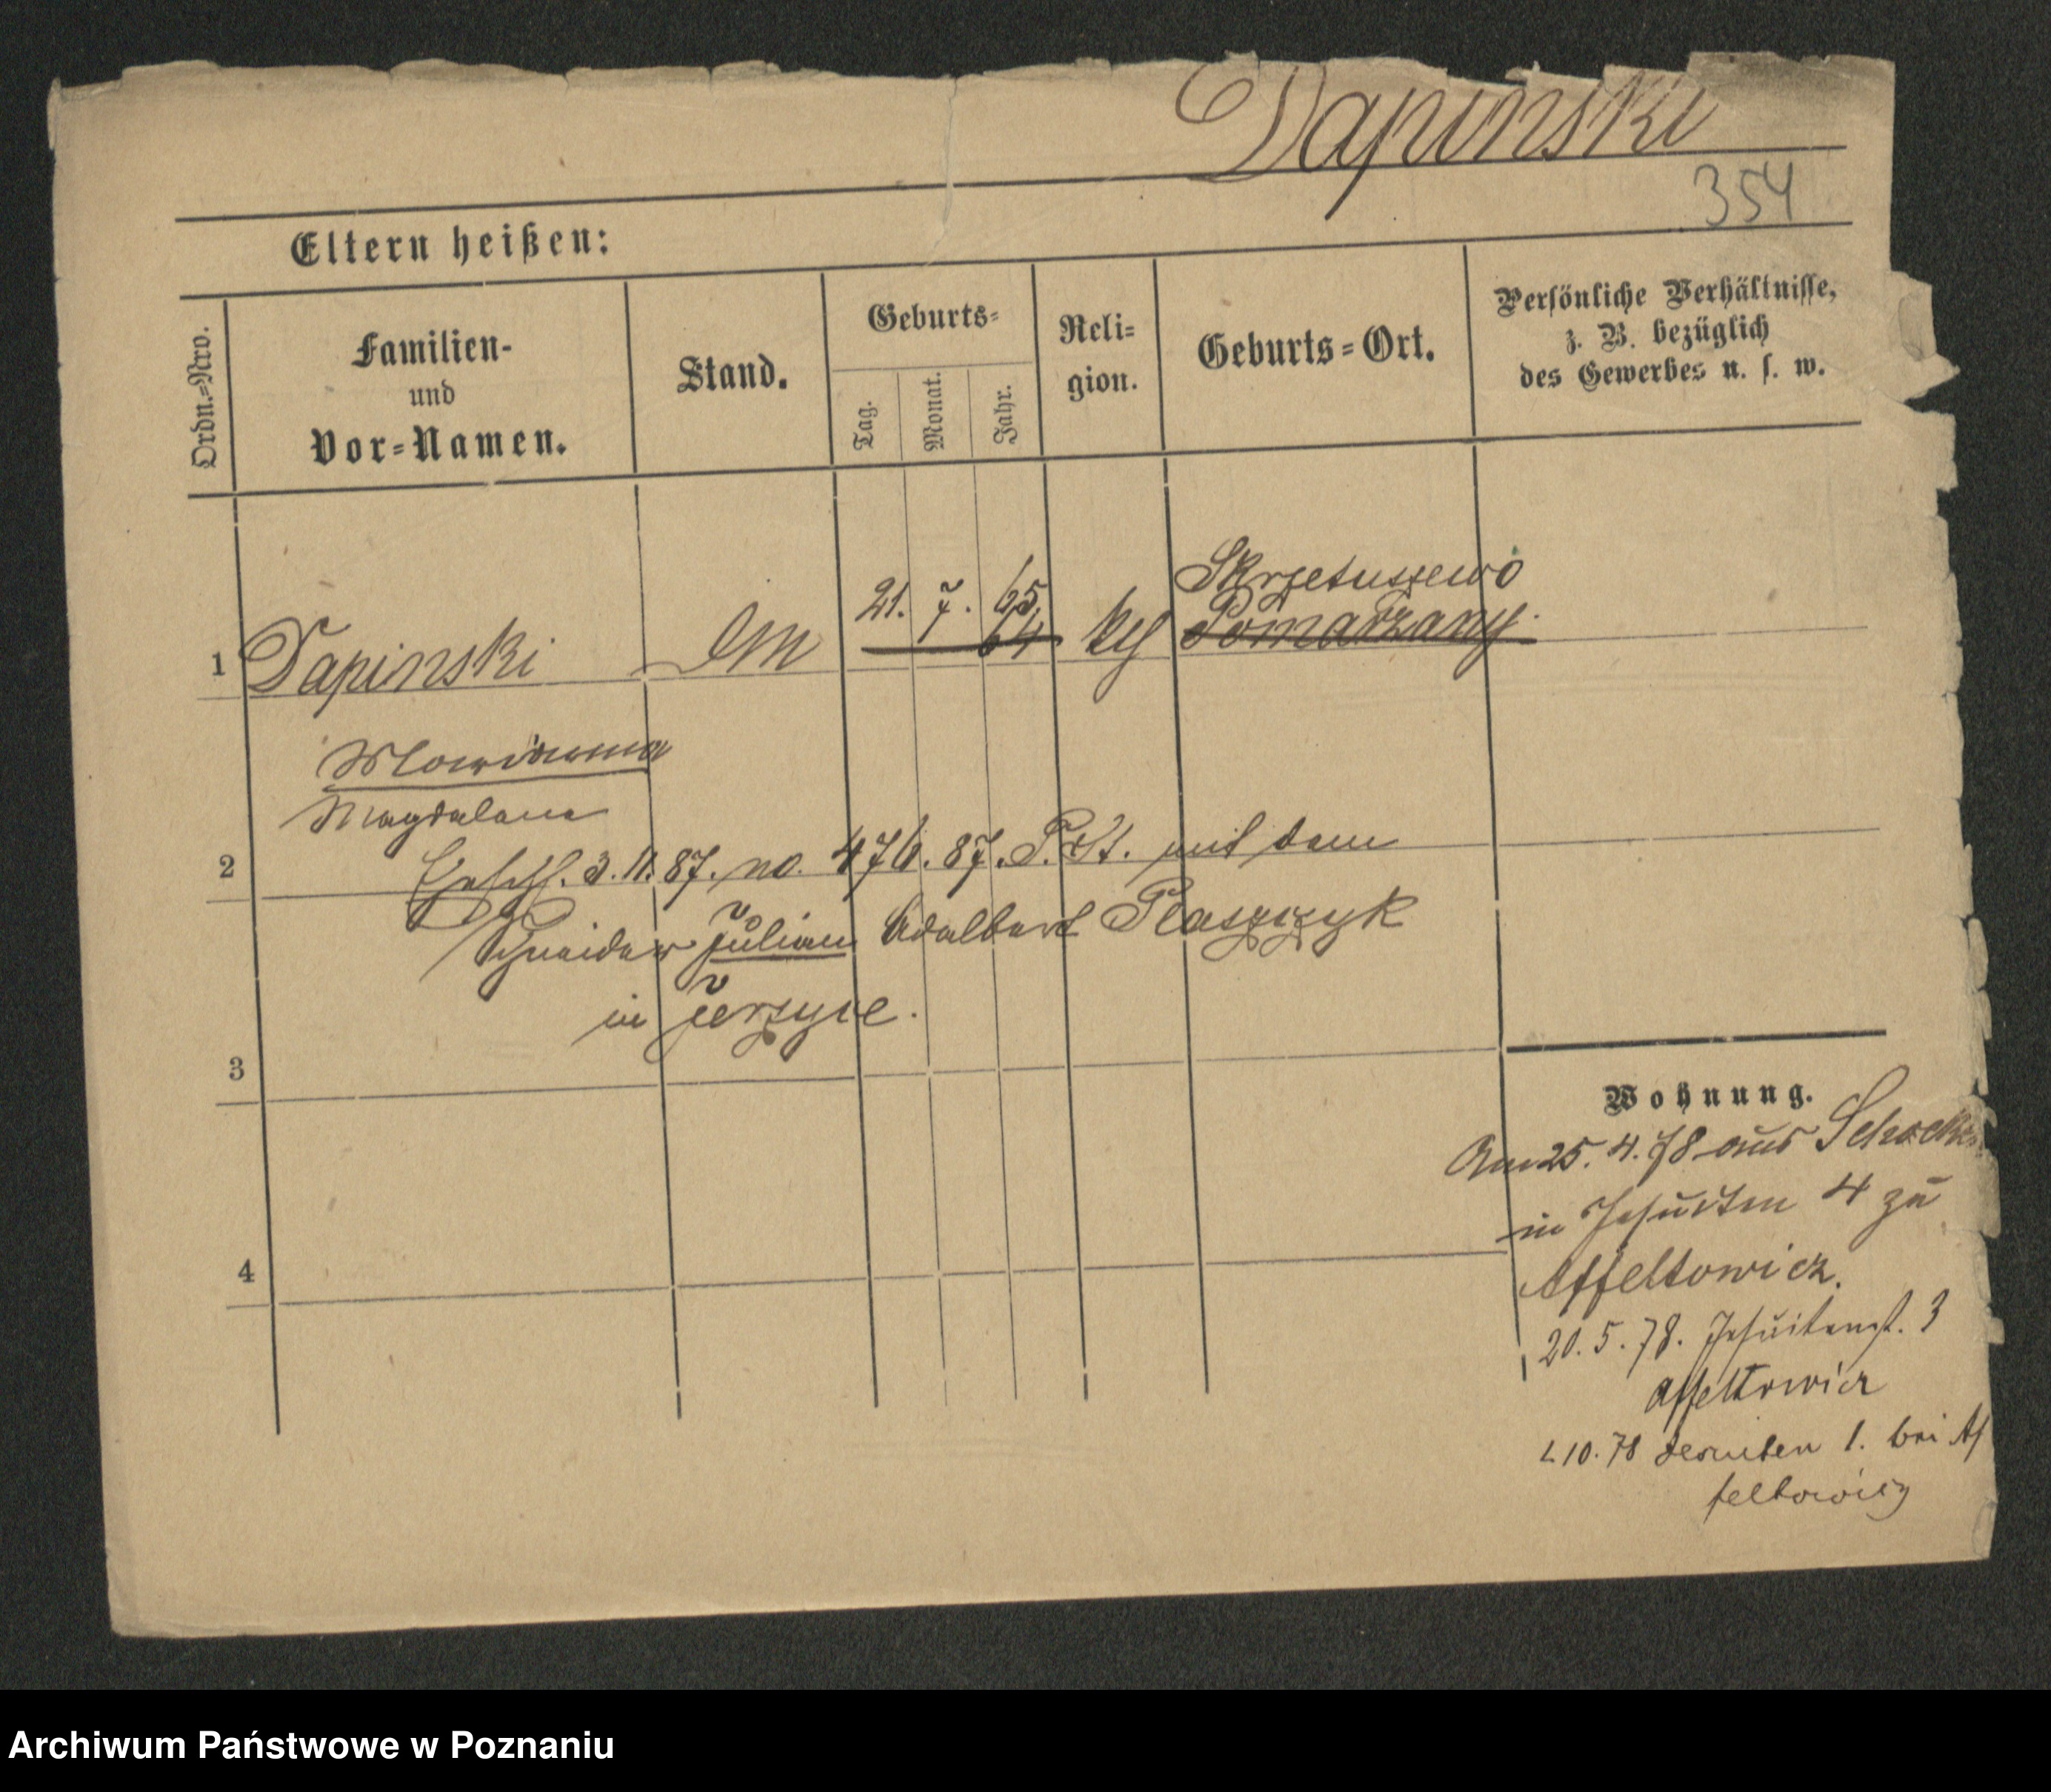 Dapinski
354
Eltern heißen:
Ordn.=Nro.
Familien-
und
Vor=Namen.
Stand.
Geburts=
Tag.
Monat.
Jahr.
Reli=
gion.
Geburts=Ort.
Persönliche Verhältnisse,
z. B. bezüglich
des Gewerbes u. s. w.
Skrzetuszewo
21. 7. 65
1 Dapinski 64 kth Pomarzany
Magdalena
2
3.11.87. no. 476.87. P. St. mit dem
Schneider Julian Adalbert Ptaszczyk
in Jerzyce.
3
Wohnung.
Am 25. 4. 78 aus Schocken
in Jesuiten 4 zu
4
Affeltowicz.
20. 5. 78. Jesuitenst. 3
Affeltowicz
10. 78 Jesuiten 1. bei Af
feltowicz
Archiwum Państwowe w Poznaniu